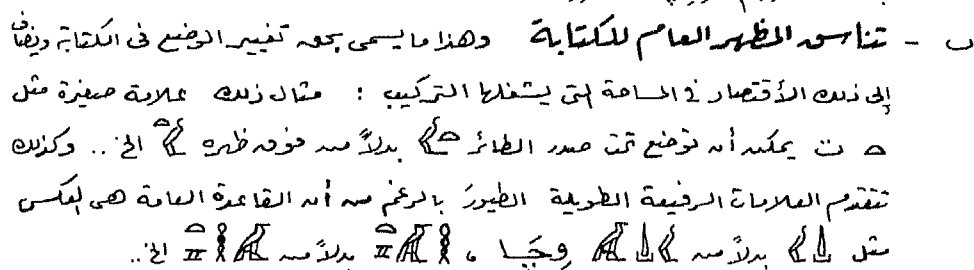 ب - تناسق المظهر العام للكتابة وهذا ما يسمى بحق تغيير الوضع فى الكتابة ويضاف
إلى ذلك الأقتصار فى المساحة التى يشغلها التركيب : مثال ذلك علامة صغيرة مثل
ت يمكن أن توضع تحت صدر الطائر بدلاً من فوق ظهره الخ .. وكذلك
تتقدم العلامات الرفيعة الطويلة الطيورَ بالرغم من أن القاعدة العامة هى العكس
مثل بدلاً من وجَـبـا ، بدلاً من الخ ..